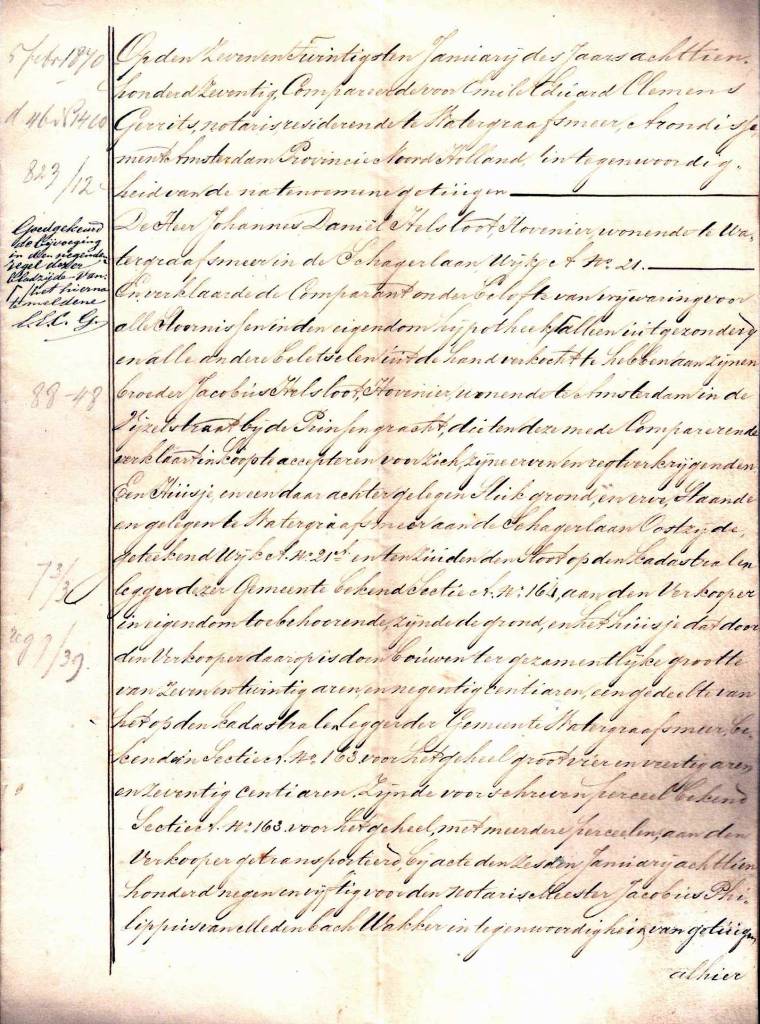 5 febr 1870
d 46 N 1400
823/12
Goedgekeurd
de bijvoeging
in den negenden
regel dezer
bladzijde van
het hierna
te meldene
E.E.C. G.
88-48
7 3/3
reg 9/39.
Op den Zeven en Twintigsten Januarij des Jaars achttien-
honderd Zeventig, Compareerde voor Emile Eduard Clemens
Gerrits, notaris residerende te Watergraafsmeer, Arondisse-
ment Amsterdam Provincie Noord Holland, in tegenwoordig-
heid van de natenoemene getuigen
De Heer Johannes Daniël Helsloot, Hovenier, wonende te Wa-
tergraafsmeer in de Schagerlaan Wijk A No. 21.
En verklaarde de Comparant onder belofte van vrijwaring voor
alle Stoornissen in den eigendom hypotheek alleen uitgezonderd
en alle andere beletselen uit de hand verkocht te hebben aan zijnen
broeder Jacobus Helsloot, Hovenier, wonende te Amsterdam in de
Vijzelstraat bij de Prinsengracht, die ten deze mede Comparerende
verklaart in koop te accepteren voor zich, zijne erven en regtverkrijgenden
Een Huisje, en een daar achter gelegen Stuk grond, en erve, Staande
en gelegen te Watergraafsmeer aan de Schagerlaan Oostzijde,
geteekend Wijk A. No. 21 en ten Zuiden den Sloot op den kadastralen
legger dezer Gemeente bekend Sectie A. No. 164, aan den Verkooper
in eigendom toebehoorende, zijnde de grond, en het huisje dat door
den Verkooper daarop is doen bouwen ter gezamentlijke grootte
van Zeven en twintig aren, en negentig centiaren, een gedeelte van
het op den kadastralen legger der Gemeente Watergraafsmeer, be-
kend in Sectie A. No. 163. voor het geheel groot vier en veertig aren
en zeventig centiaren. Zijnde voorschreven perceel bekend
Sectie A. No. 163. voor het geheel, met meerdere perceelen, aan den
Verkooper getransporteerd, bij acte den Zesden January achttien
honderd negen en vijftig voor den Notaris Meester Jacobus Phi-
lippus van Medenbach Wakker in tegenwoordigheid van getuigen
alhier